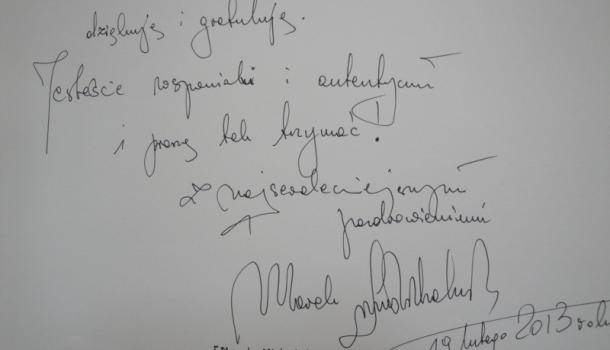 dziękuję i gratuluję.
Jesteście wspaniali i autentyczni
i proszę tak trzymać!
Z najserdeczniejszymi
pozdrowieniami
Marek
19 lutego 2013 roku